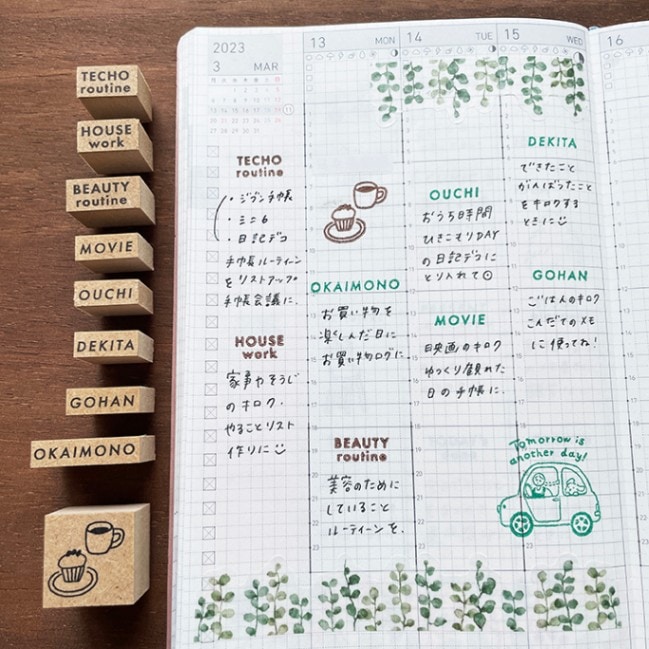 TECHO
routine
HOUSE
work
BEAUTY
routine
MOVIE
OUCHI
DEKITA
GOHAN
OKAIMONO
2023
3 MAR
TECHO
routine
・ジブン手帳
・ミニ6
・日記デコ
手帳ルーティーン
をリストアップ
手帳会議に.
HOUSE
work
家事やそうじ
のキロク.
やることリスト
作りに
13 MON
OKAIMONO
お買い物を
楽しんだ日に
お買い物ログに
BEAUTY
routine
美容のために
していること
ルーティーンを.
14 TUE
OUCHI
おうち時間
ひきこもりDAY
の日記デコに
とり入れて
MOVIE
映画のキロク
ゆっくり観れた
日の手帳に.
15 WED
DEKITA
できたこと
がんばったこと
をキロクする
ときに
GOHAN
ごはんのキロク
こんだてのメモ
に使ってね!
Tomorrow is
another day!
16